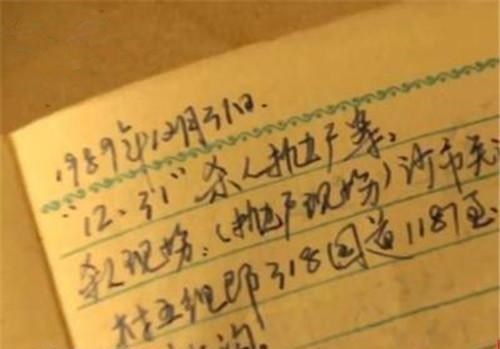 1989年12月31日.
"12.31"杀人抛尸案.
杀人现场:(抛尸现场)沙市关
村五组即318国道1187